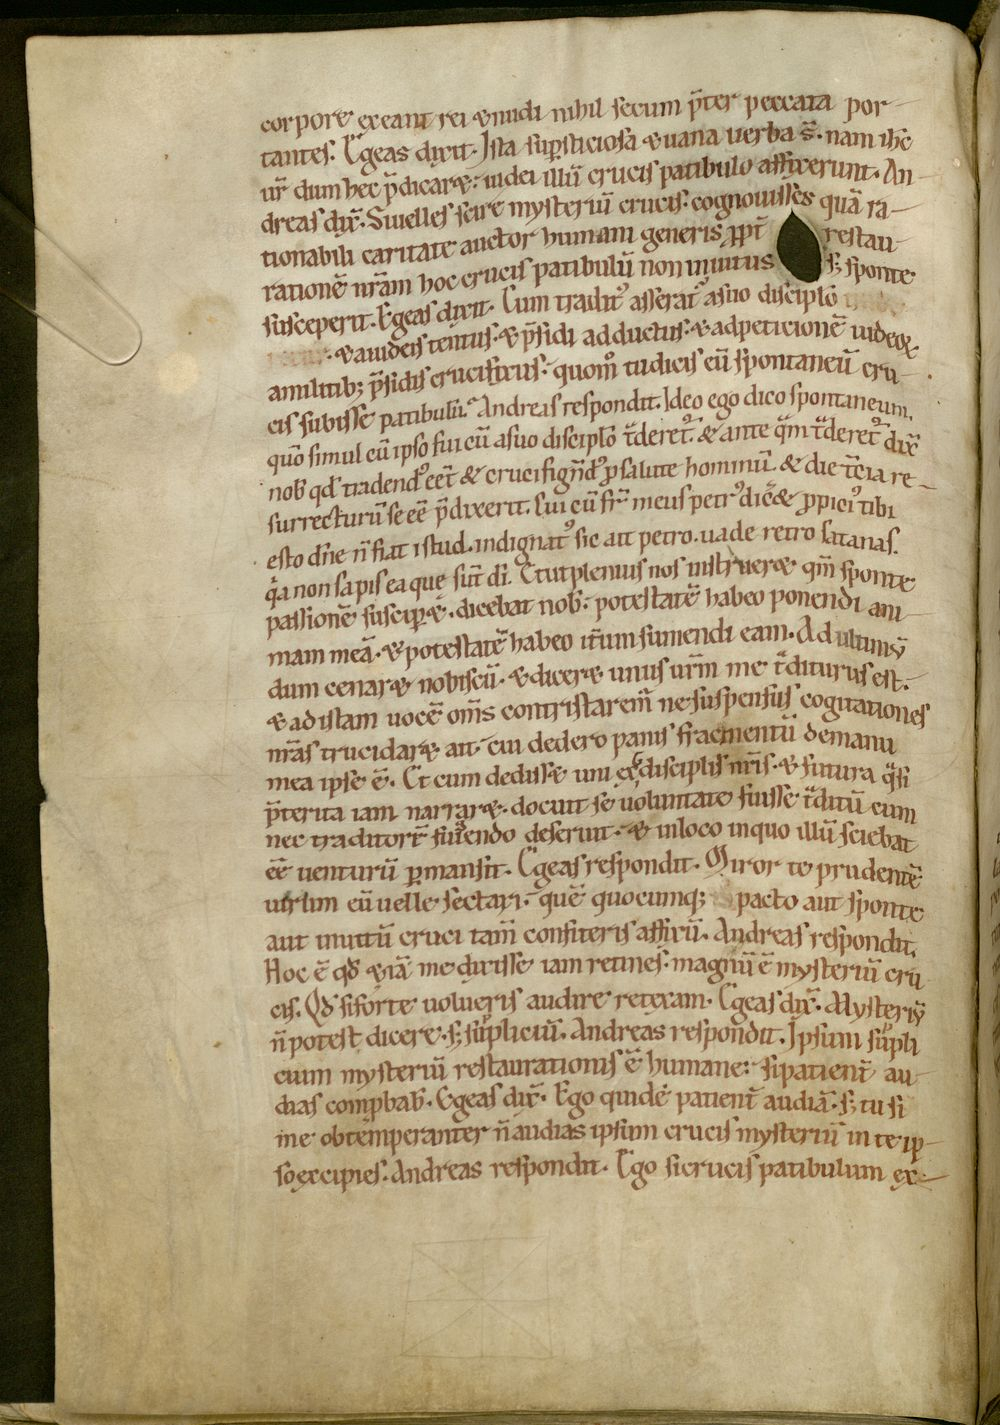 corpore exeant rei & nudi nihil secum p̄ter peccata por-
tantes. Egeas dixit. Ista sup̱sticiosa & uana uerba s̄. nam ihc̄
ur̄ dum hec p̄dicar&. iudei illū crucis patibulo affixerunt. An-
dreas dix̄. Si uelles scire mysteriū crucis. cognouisses quā ra-
tionabili caritate auctor humani generis ꝓpt̄ restau-
rationē nr̄am hoc crucis patibulū non inuitus sꝫ sponte
susceperit. Egeas dixit. Cum tradit᾿ asserat᾿ a suo disciplō
& a iudeis tentus. & p̄sidi adductus. & ad peticionē iudeoꝝ
a militibꝫ p̄sidis crucifixus. quom̊ tu dicis eū spontaneū cru-
cis subisse patibulū. Andreas respondit. Ideo ego dico spontaneum.
quō simul cū ipso fui cū a suo disciplō t̄deret᾿. & ante q̄m t̄deret᾿ dix̄
nob̄ qd̄ tradend᾿ eēt & crucifigēd᾿ ꝓ salute hominū. & die t̄cia re-
surrecturū se eē p̄dixerit. Cui cū fr̄ meus petr᾿ dic̄& ꝓpici᾿ tibi
esto dn̄e n̄ fiat istud. indignat᾿ sic ait petro. uade retro satanas.
q̄a non sapis ea quę sūt dī. Et ut plenius nos instruer& qm̄ sponte
passionē susciꝑ&. dicebat nob̄. potestatē habeo ponendi ani-
mam meā. & potestatē habeo it̄um sumendi eam. Ad ultimū
dum cenar& nobiscū. & dicer& unus ur̄m me t̄diturus est.
& ad istam uocē om̄s contristarem̄ ne suspensus cogitationes
nr̄as trucidar& ait. cui dedero panis fracmentū de manu
mea ipse ē. Et cum dediss& uni ex disciplis nr̄is. & futura q̄si
p̄terita iam narrar&. docuit se uoluntate fuisse t̄ditū cum
nec traditorē fugiendo deseruit. & in loco in quo illū sciebat
eē uenturū ꝑmansit. Egeas respondit. Miror te prudentē
uirum eū uelle sectari. quē quocumqꝫ pacto aut sponte
aut inuitū cruci tam̄ confiteris affixū. Andreas respondit.
Hoc ē qd̄ & iā me dixisse iam retines. magnū ē mysteriū cru-
cis. Qd̄ si forte uolueris audire retexam. Egeas dix̄. Mysteriū
n̄ potest dicere. sꝫ suppliciū. Andreas respondit. Ipsum suppli
cium mysteriū restaurationis ē humane. si patient̄ au-
dias comꝓbab̄. Egeas dix̄. Ego quidē patient̄ audiā. sꝫ tu si
me obtemperanter n̄ audias ipsum crucis mysteriū in te ip-
so excipies. Andreas respondit. Ego si crucis patibulum ex-